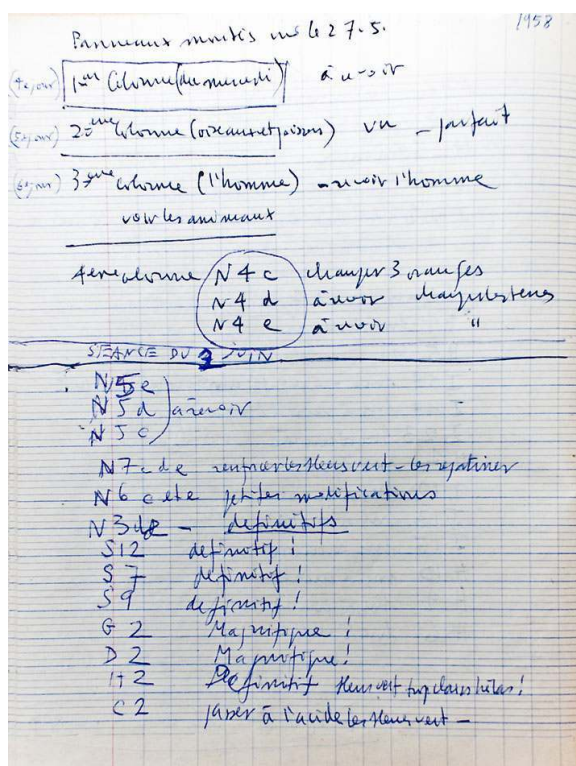 1958
Panneaux montés le 27.5.
(4e jour) 1ère Colonne (du mercredi) à revoir
(5e jour) 2ème colonne (oiseaux et poissons) vu - parfait
(6e jour) 3ème colonne (l'homme) - revoir l'homme
voir les animaux
4eme colonne N4 c changer 3 oranges
N4 d à revoir changer les terres
N4 e à revoir "
SEANCE DU 2 JUIN
N5e
N5d à revoir
N5c
N7 c d e renforcer les bleus vert - les repatiner
N6 c et e petites modifications
N3 - definitifs
S12 definitif !
S7 definitif !
S9 definitif !
G2 Magnifique !
D2 Magnifique !
H2 Definitif bleus vert trop clairs hélas !
C2 passer à l'acide les bleus vert -